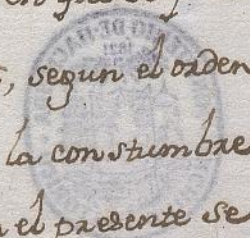 , segun el orden
la constumbre
el presente se